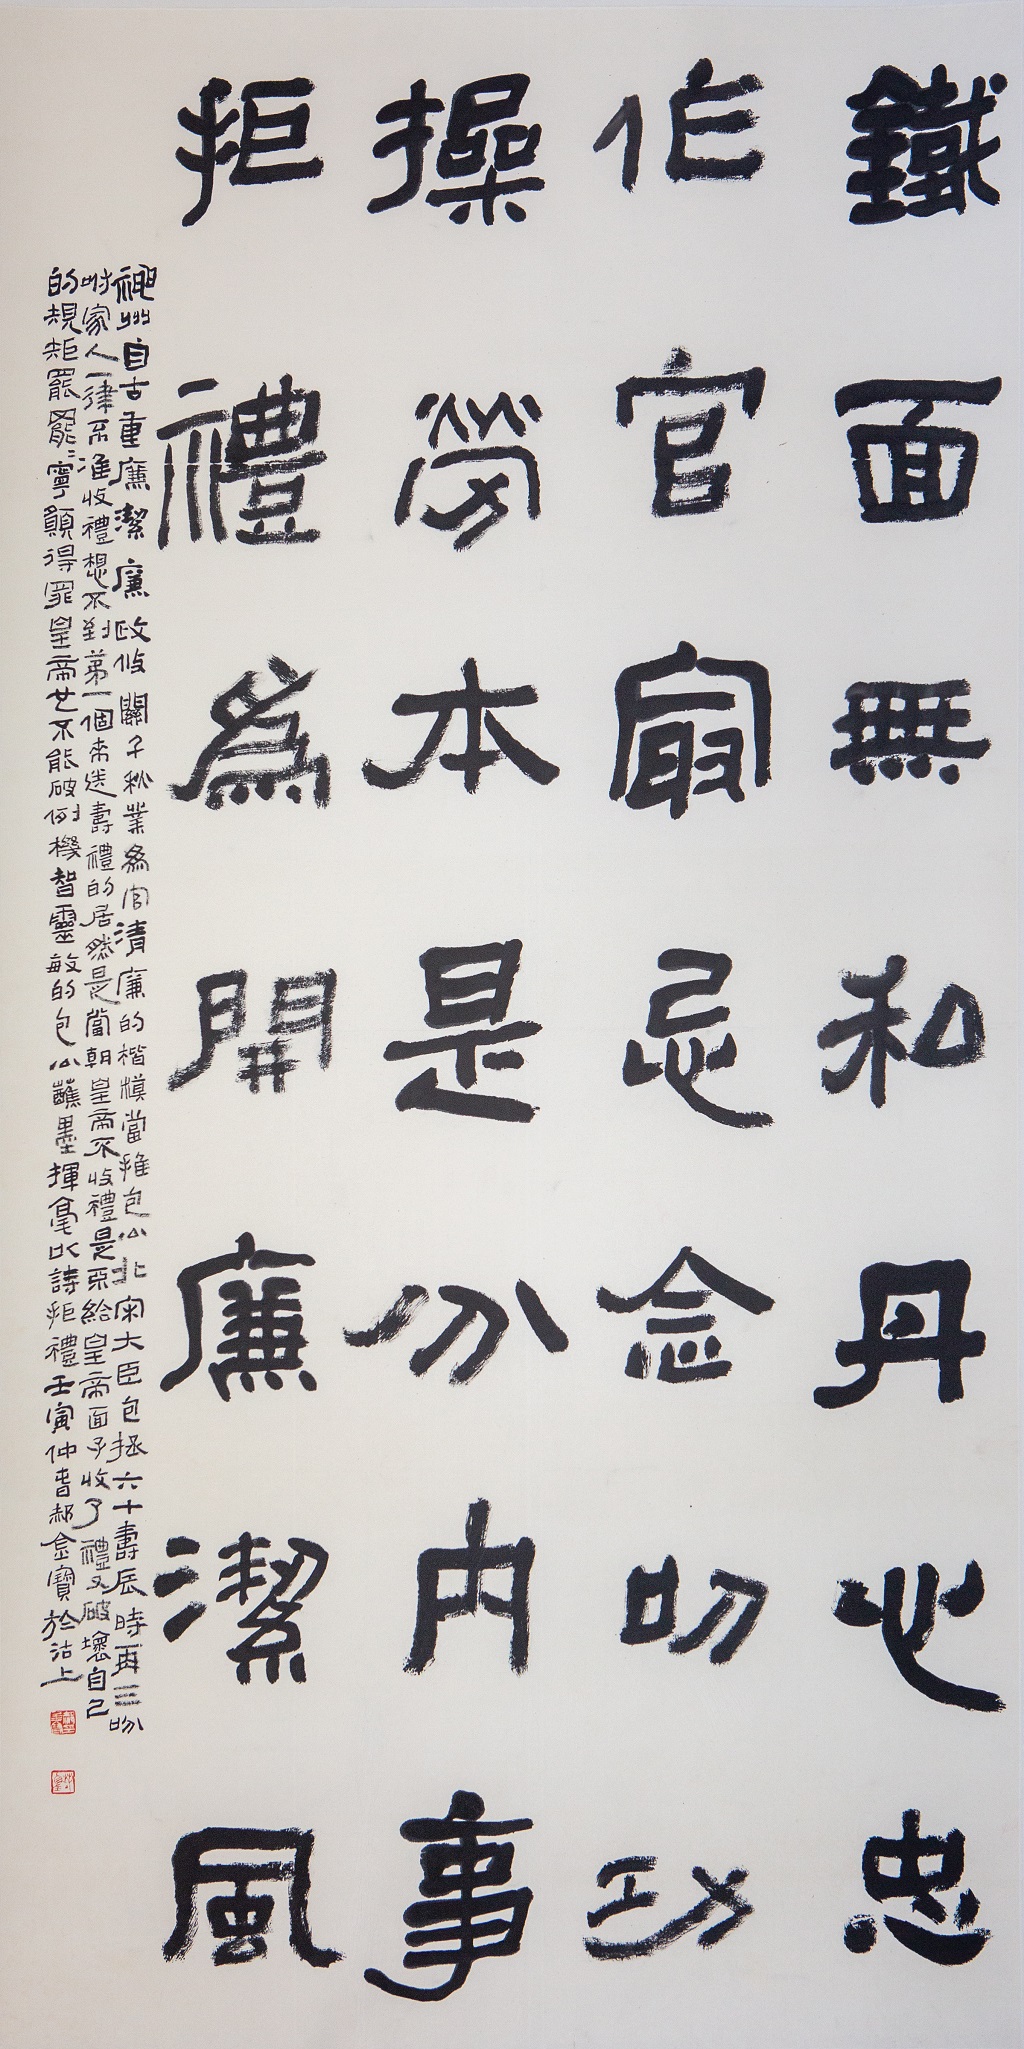 鐵面無私丹心忠
作官最忌念叨功
操勞本是分內事
拒禮為開廉潔風
神州自古重廉潔廉政攸關千秋業為官清廉的楷模當推包公北宋大臣包拯六十壽辰時再三吩
咐家人一律不准收禮想不到第一個來送壽禮的居然是當朝皇帝不收禮是不給皇帝面子收了禮又破壞自己
的規矩罷罷罷寧願得罪皇帝也不能破例機智靈敏的包公蘸墨揮毫以詩拒禮壬寅仲春郝金寶於沽上